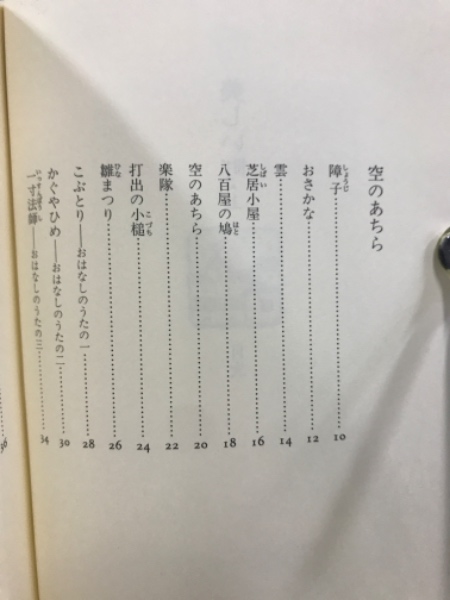 空のあちら
障子 10
おさかな 12
雲 14
芝居小屋 16
八百屋の鳩 18
空のあちら 20
楽隊 22
打出の小槌 24
雛まつり 26
こぶとり――おはなしのうたの一 28
かぐやひめ――おはなしのうたの二 30
一寸法師――おはなしのうたの三 34
36